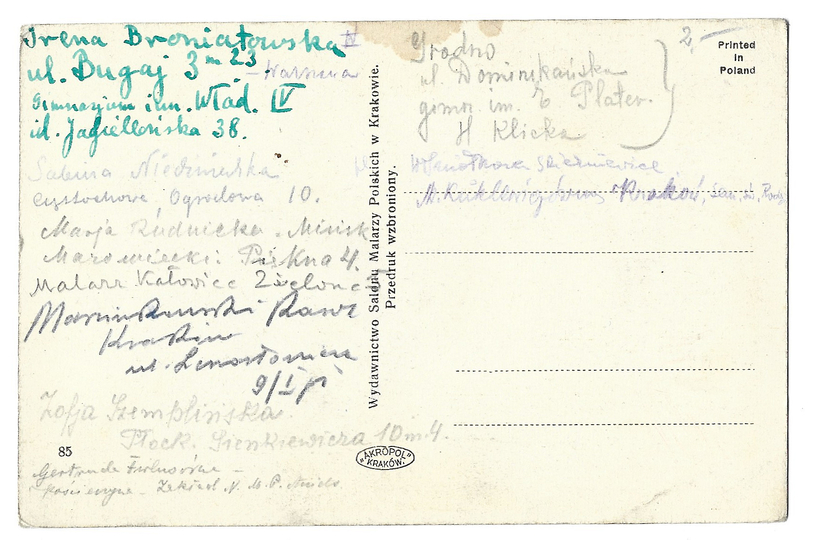 Irena Broniatowska
IV
ul. Bugaj 3 m 23
- Warszawa
Gimnazjum im. Wład. IV
ul. Jagiellońska 38.
Sabina
Częstochowa, Ogrodowa 10.
Marja Rudnicka - Mińsk
Mazowiecki Piękna 4.
Malarz Katowice Zielona
Kraków
ul.
9/I p
Zofja Szemplińska
Płock. Sienkiewicza 10 m 4.
85
Gertruda
Zakład N. M. P.
Wydawnictwo Salonu Malarzy Polskich w Krakowie.
Przedruk wzbroniony.
"AKROPOL"
KRAKÓW.
2,-
Printed
in
Poland
Grodno
ul. Dominikańska
gimn. im. E Plater.
H Klicka
Skierniewice
M. Kuklewiczówna Kraków,